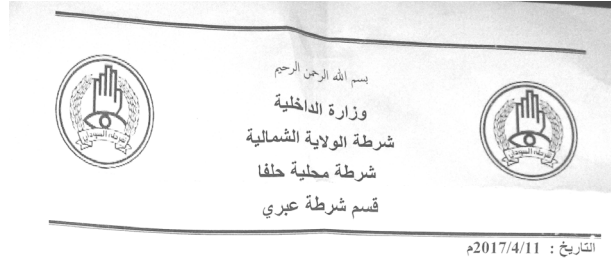 بسم الله الرحمن الرحيم
وزارة الداخلية
شرطة الولاية الشمالية
شرطة محلية حلفا
قسم شرطة عبري
شرطة السودان
شرطة السودان
التاريخ : 2017/4/11م